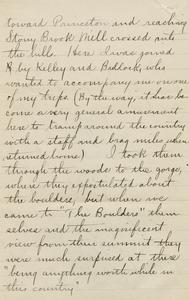 toward Princeton and reaching
Stony Brook Mill crossed into
the hills. Here I was joined
by Kelley and Bedlock, who
wanted to accompany me on one
of my trips (By the way, it has be-
come a very general amusement
here to tramp around the country
with a staff and brag miles when
returned home) I took them
through the woods to the gorge,
where they expostulated about
the boulders, but when we
came to "The Boulders" them
selves and the magnificent
view from their summit they
were much surprised at there
"being anything worth while in
this country"